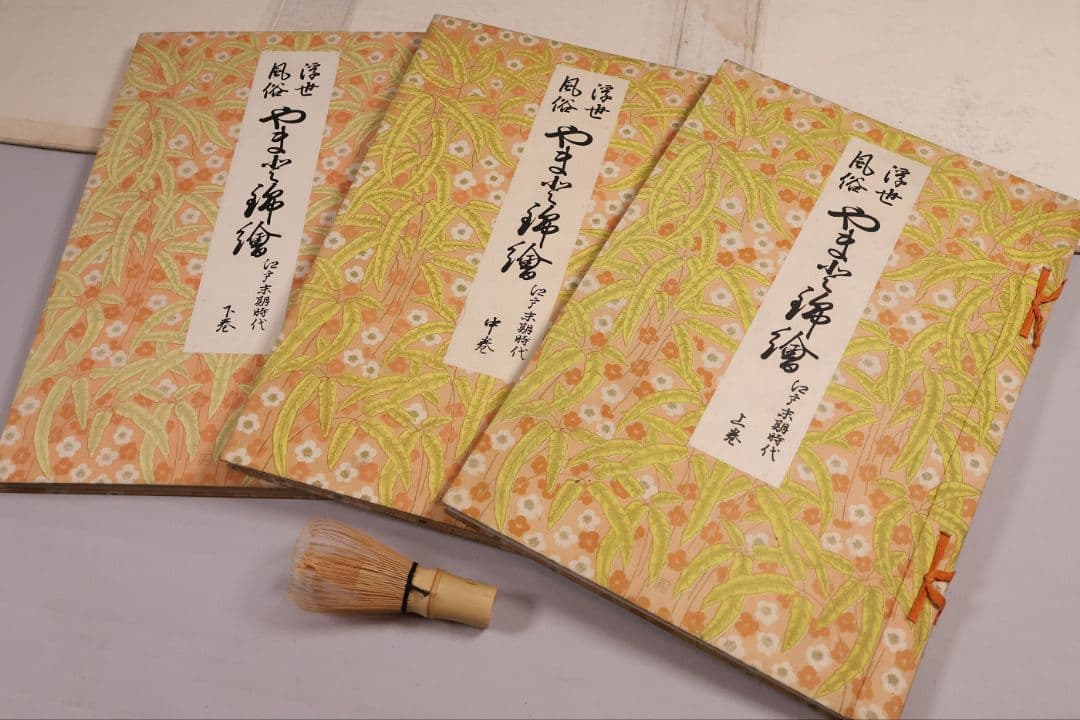 浮世
風俗
やまと錦繪
江戸末期時代
下巻
浮世
風俗
やまと錦繪
江戸末期時代
中巻
浮世
風俗
やまと錦繪
江戸末期時代
上巻